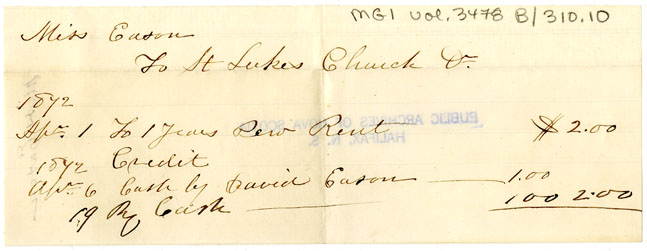 MG1 vol. 3478 B/310.10
Miss Eason
To St Lukes Church Dr.
1872
Apr. 1 To 1 Years Pew Rent $2.00
PUBLIC ARCHIVES OF NOVA SCOTIA
HALIFAX, N. S.
1872 Credit
Apr 6 Cash by David Eason 1.00
19 By Cash 1 00 2.00